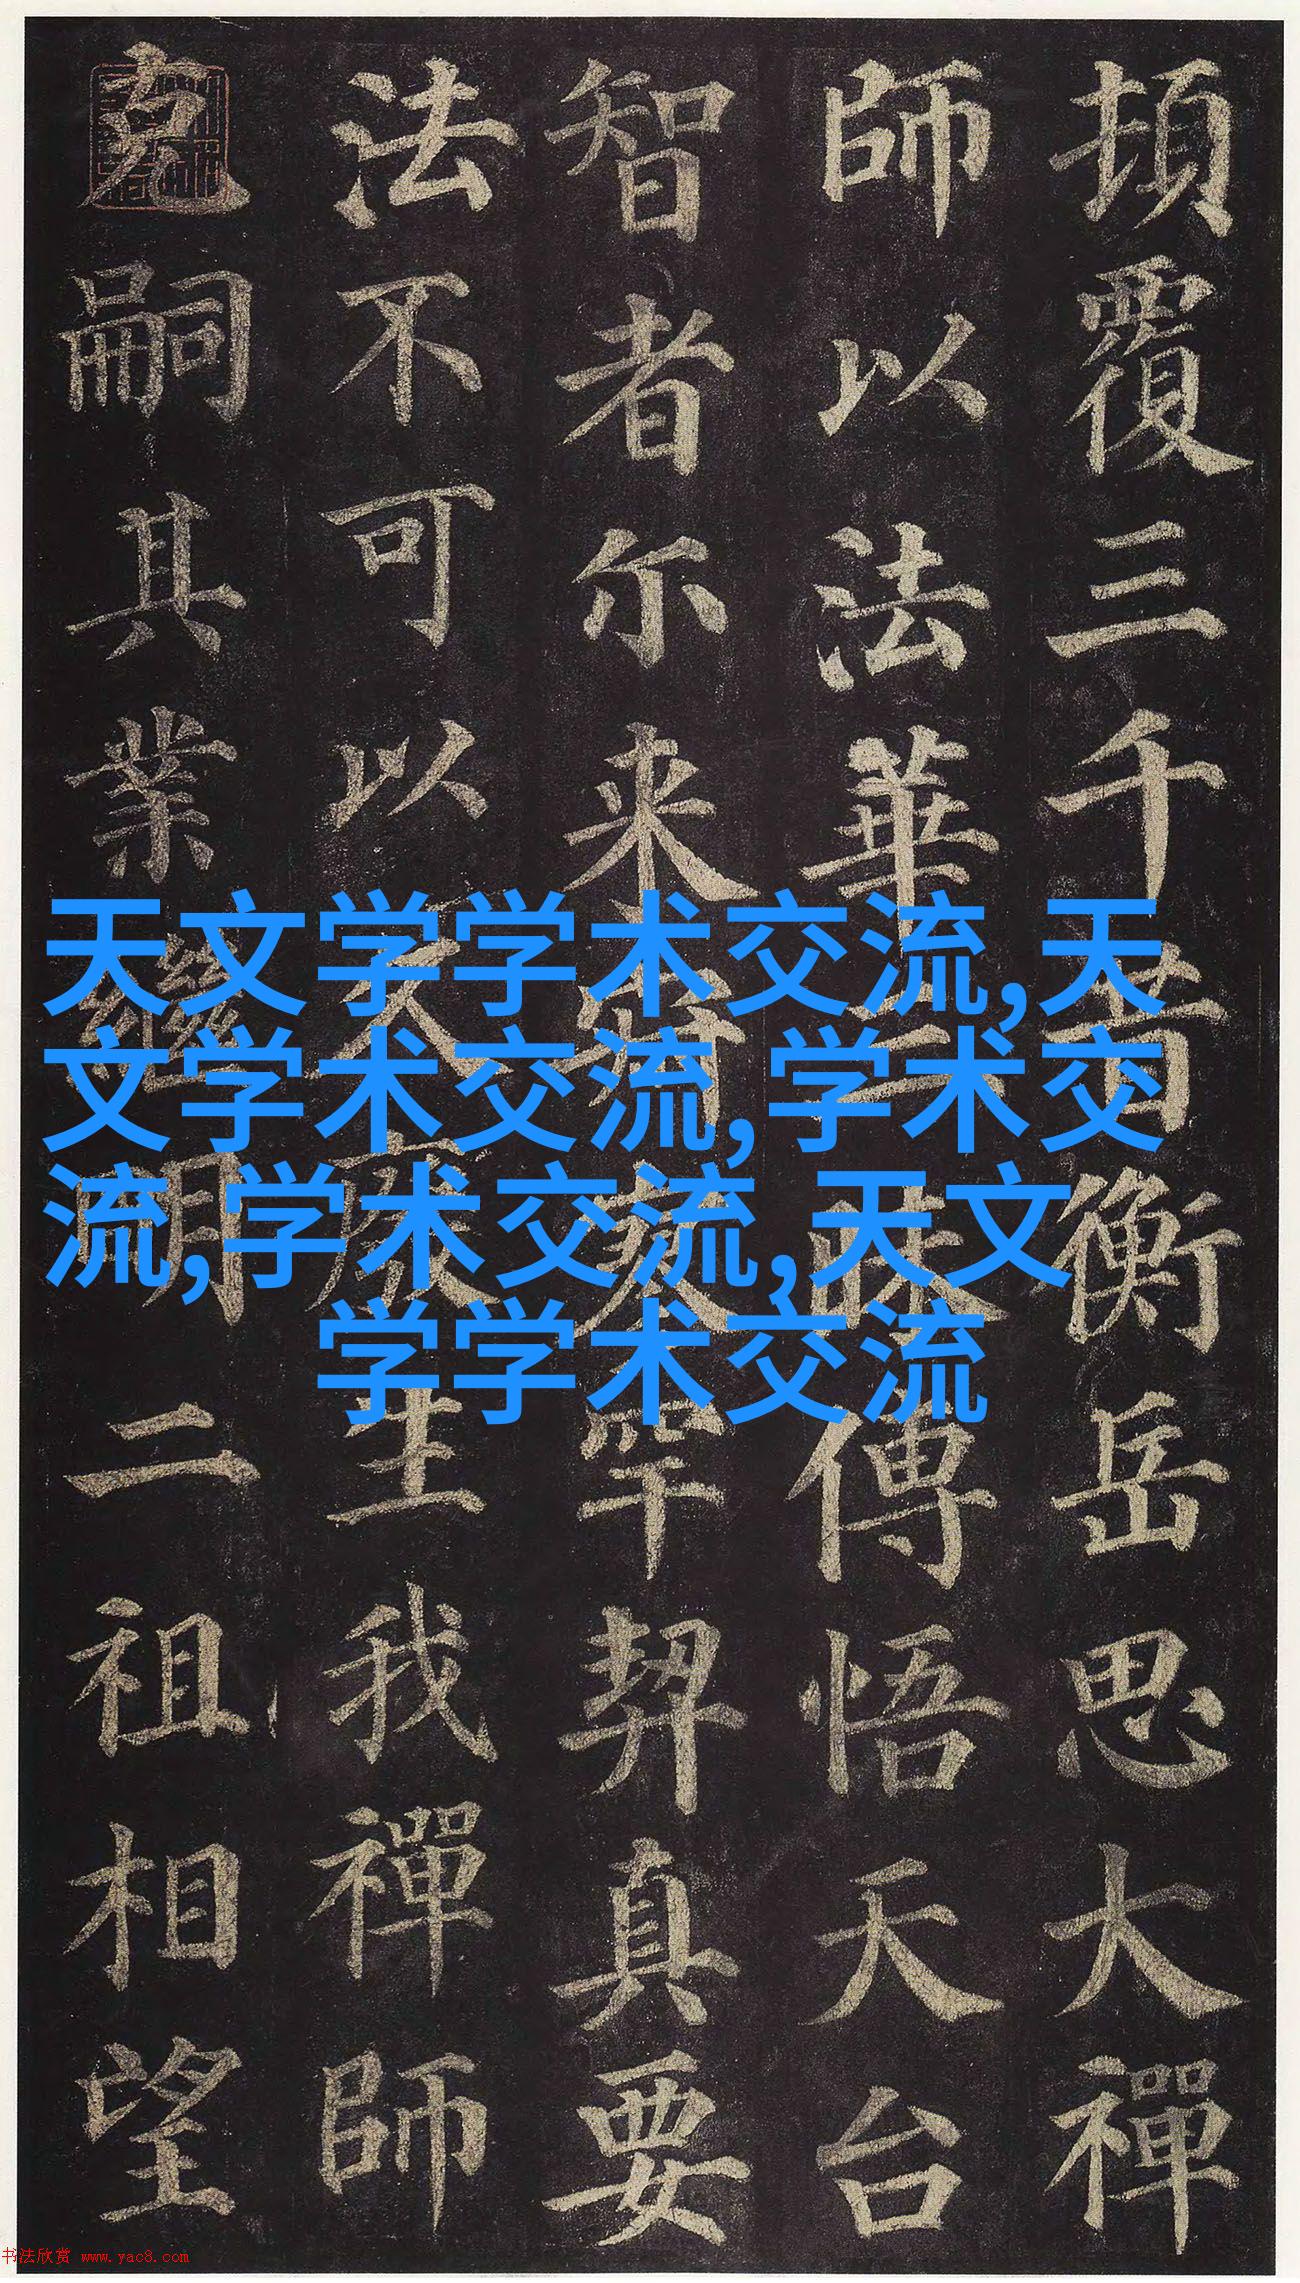 頓覆三千昔衡岳思大禪
師以法華三昧傳悟天台
智者尔来寂寥罕契真要
法不可以久廢生我禪師
克嗣其業繼明二祖相望
天文学学术交流,天
文学术交流,学术交
流,学术交流,天文
学学术交流
书法欣赏 www.yac8.com